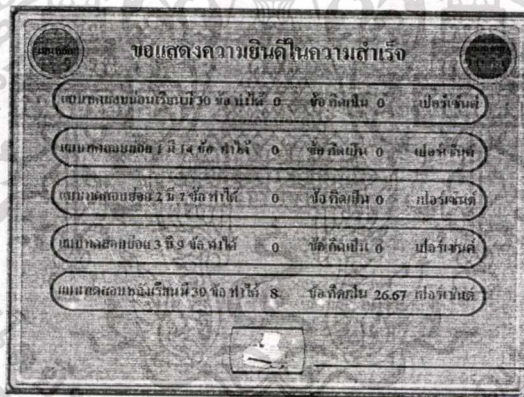 ขอแสดงความยินดีในความสำเร็จ
แบบทดสอบก่อนเรียนมี 30 ข้อ ทำได้ 0 ข้อ คิดเป็น 0 เปอร์เซ็นต์
แบบทดสอบย่อย 1 มี 14 ข้อ ทำได้ 0 ข้อ คิดเป็น 0 เปอร์เซ็นต์
แบบทดสอบย่อย 2 มี 7 ข้อ ทำได้ 0 ข้อ คิดเป็น 0 เปอร์เซ็นต์
แบบทดสอบย่อย 3 มี 9 ข้อ ทำได้ 0 ข้อ คิดเป็น 0 เปอร์เซ็นต์
แบบทดสอบหลังเรียนมี 30 ข้อ ทำได้ 8 ข้อ คิดเป็น 26.67 เปอร์เซ็นต์